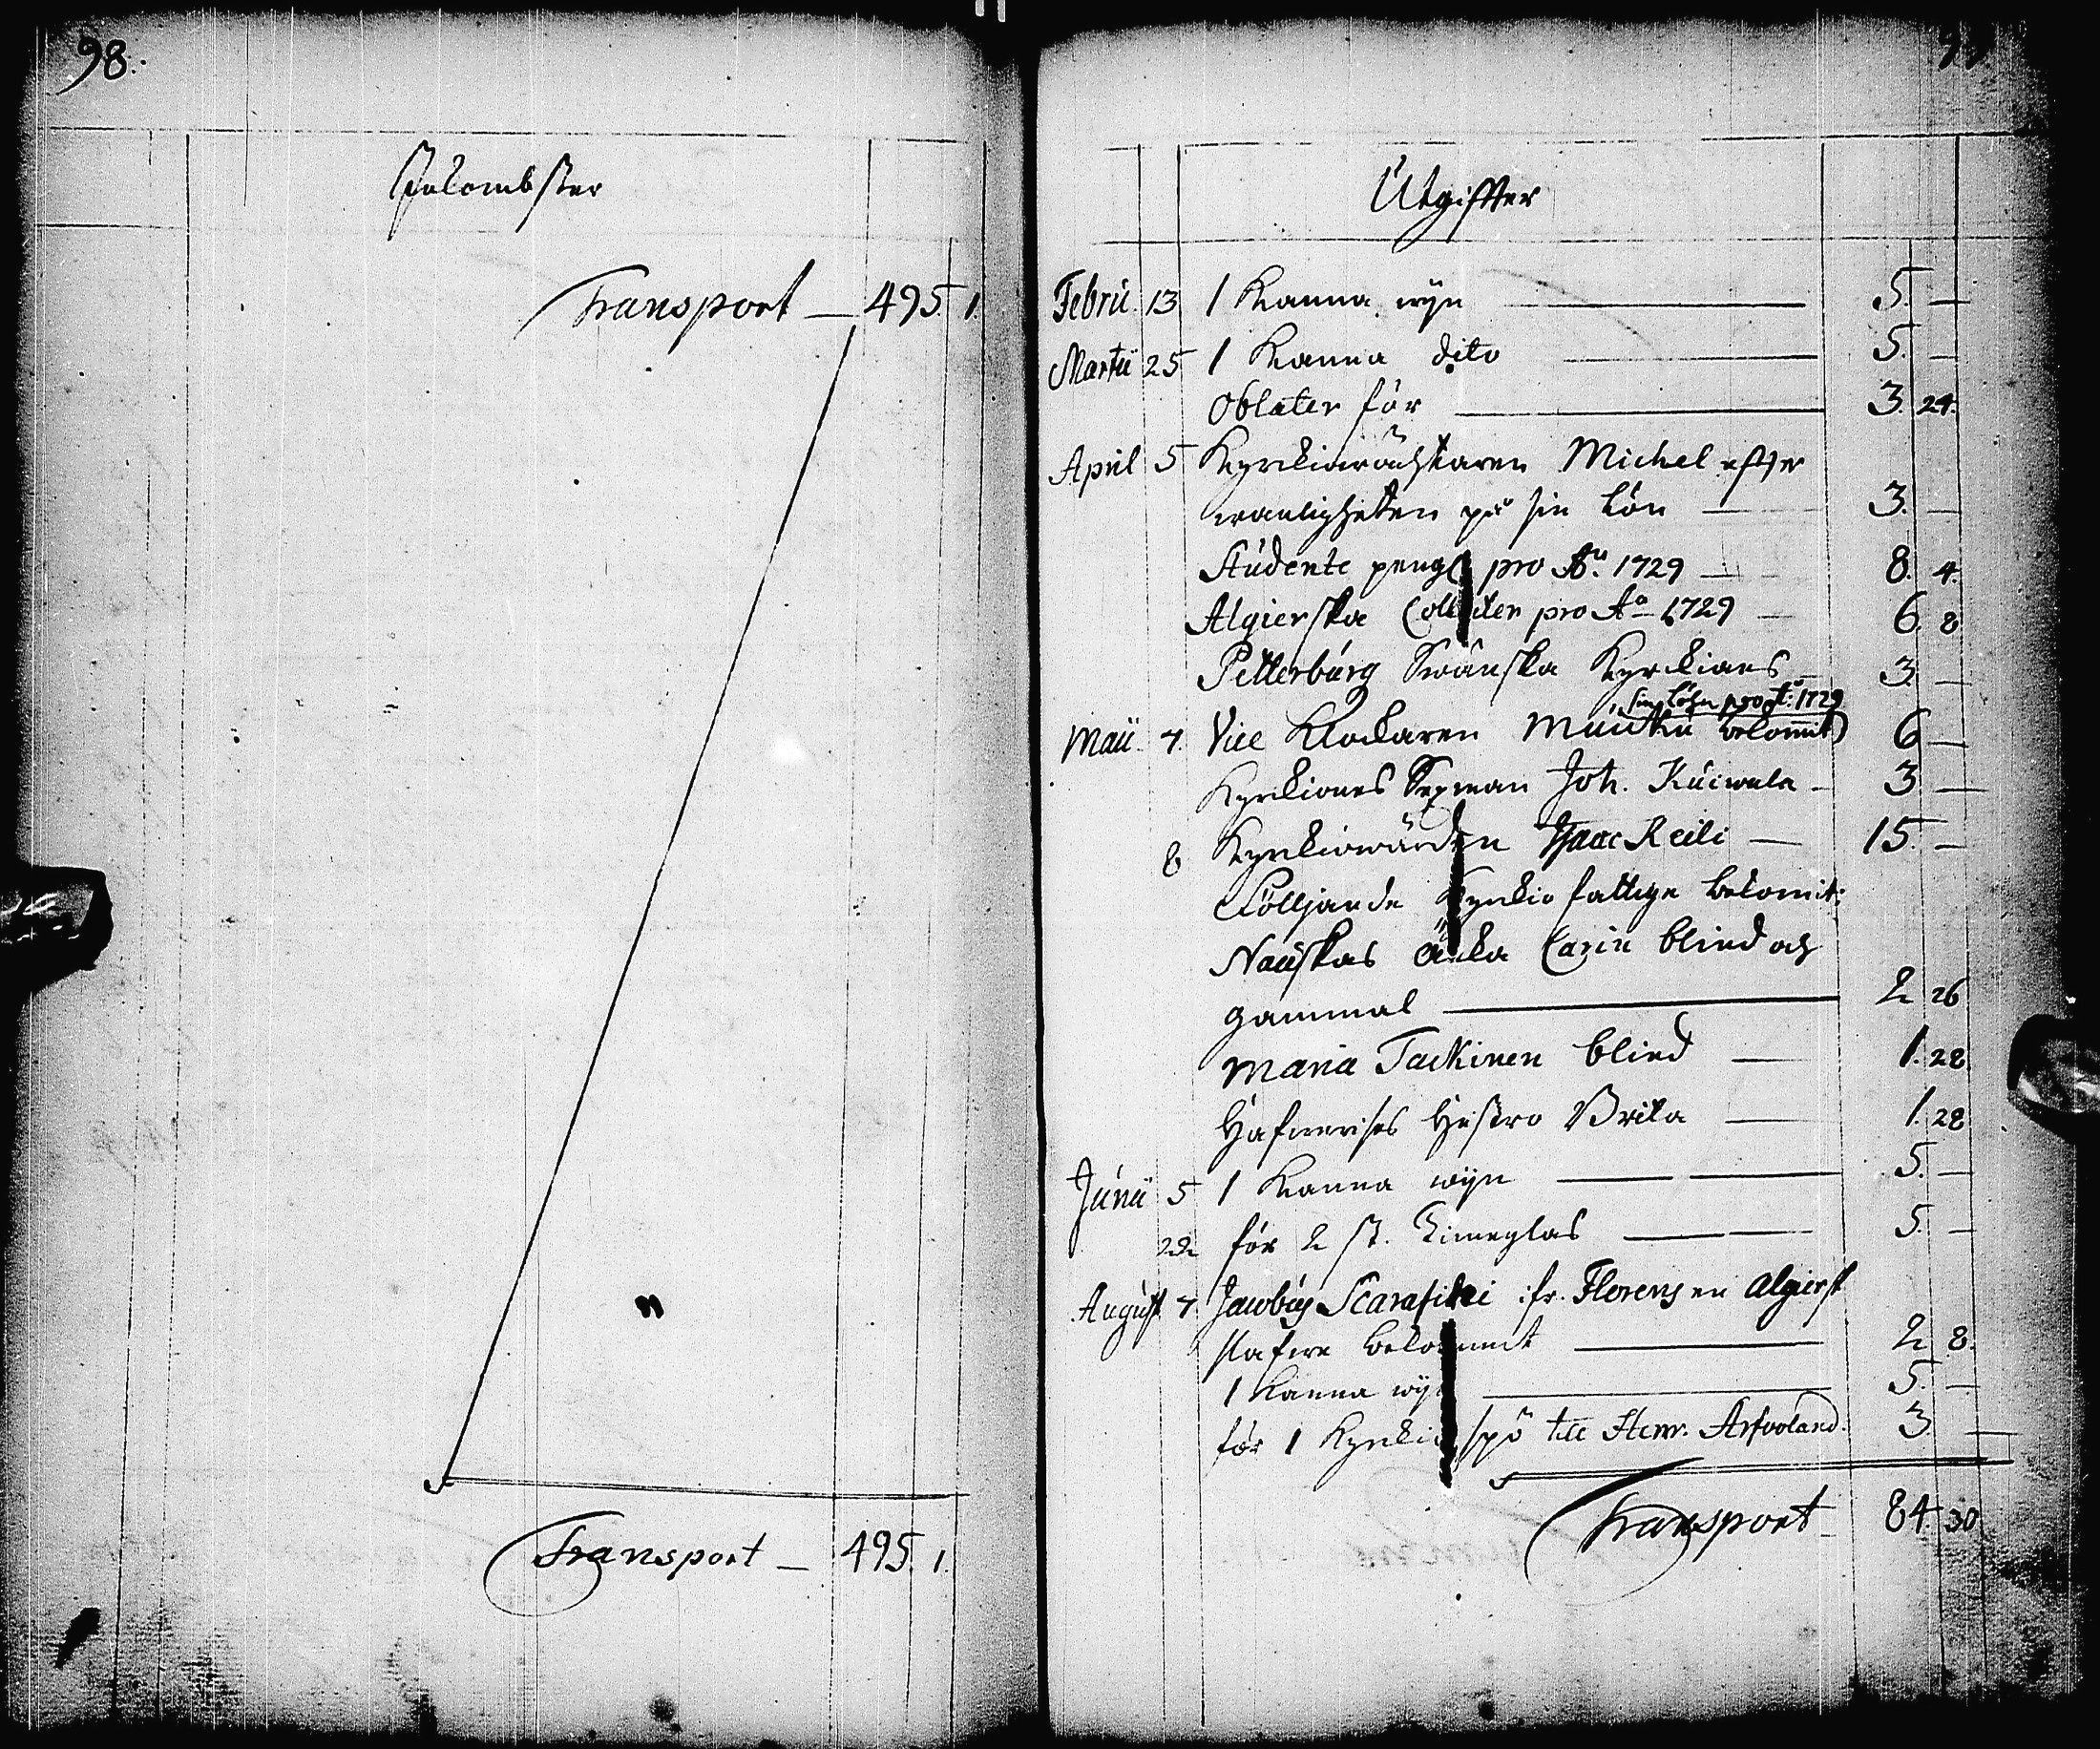 98.
Inkombster
Transport — 495. 1.
Transport — 495. 1.
Utgiffter
Febru. 13 1 Kanna wyn — 5. —
Martii 25 1 Kanna dito — 5. —
Oblater för — 3. 24.
April 5 Kyrkiowächtaren Michel effter
wanligheten på sin Lön — 3. —
Studente peng pro Ao. 1729 — 8. 4.
Algierska Collecten pro Ao 1729 — 6. 8
Petterburg Swänska Kyrkians — 3. —
sin Löhn pro A: 1729
Maii 7. Vice Klockaren bekommit 6 —
Kyrkiones Sexman Joh. Kuiwala — 3 —
8 Kyrkiowärden Isaac Reili — 15. —
Fölljande Kyrkio fattige bekomit:
Nauskas änka Carin blind och
gammal — 2 26
Maria Tackinen blind — 1. 28
Hustro Brita — 1. 28
Junii 5 1 Kanna wyn — 5. —
22 för 2 st. Timeglas — 5. —
August 7 Jacobus Scarafini fr. Florens en Algiersk
slafwe bekommit — 2 8.
1 Kanna wyn — 5. —
för 1 Kyrkio spö till Henr. Arfwoland. 3 —
Transport 84. 30